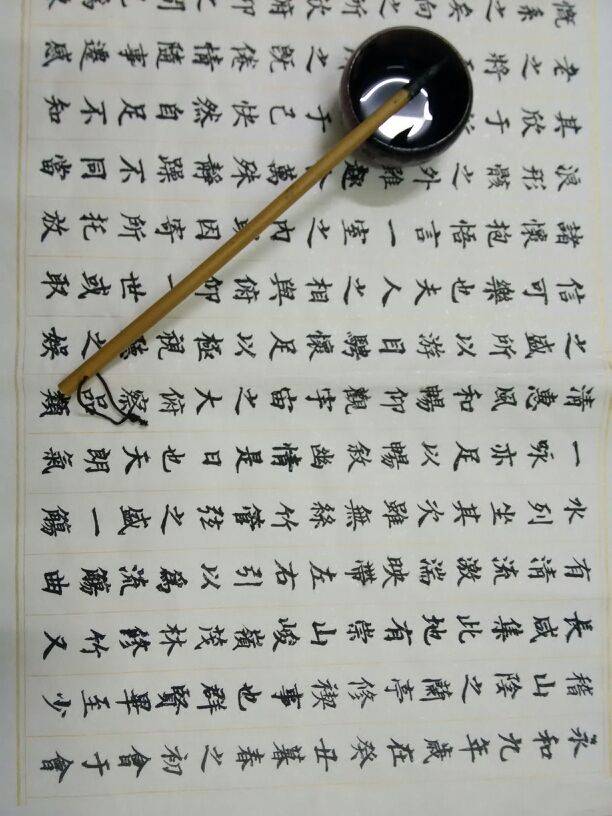 永和九年歲在癸丑暮春之初會于會
稽山陰之蘭亭修禊事也群賢畢至少
長咸集此地有崇山峻嶺茂林修竹又
有清流激湍映帶左右引以爲流觴曲
水列坐其次雖無絲竹管弦之盛一觴
一咏亦足以暢敘幽情是日也天朗氣
清惠風和暢仰觀宇宙之大俯察品類
之盛所以游目騁懷足以極視聽之娛
信可樂也夫人之相與俯仰一世或取
諸懷抱悟言一室之內取因寄所托放
浪形骸之外雖趣萬殊靜躁不同當
其欣于于己快然自足不知
老之將之既倦情隨事遷感
慨系之矣向所欣俯仰之